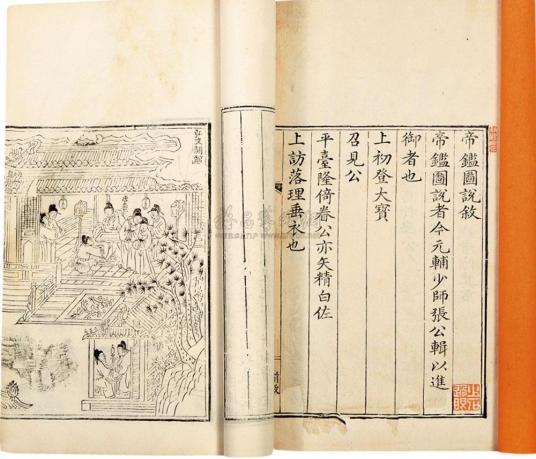 帝鑑圖說敘
帝鑑圖說者今元輔少師張公輯以進
御者也
上初登大寶
召見公
平臺隆倚眷公亦矢精白佐
上訪落理垂衣也
前敘
弘文開館